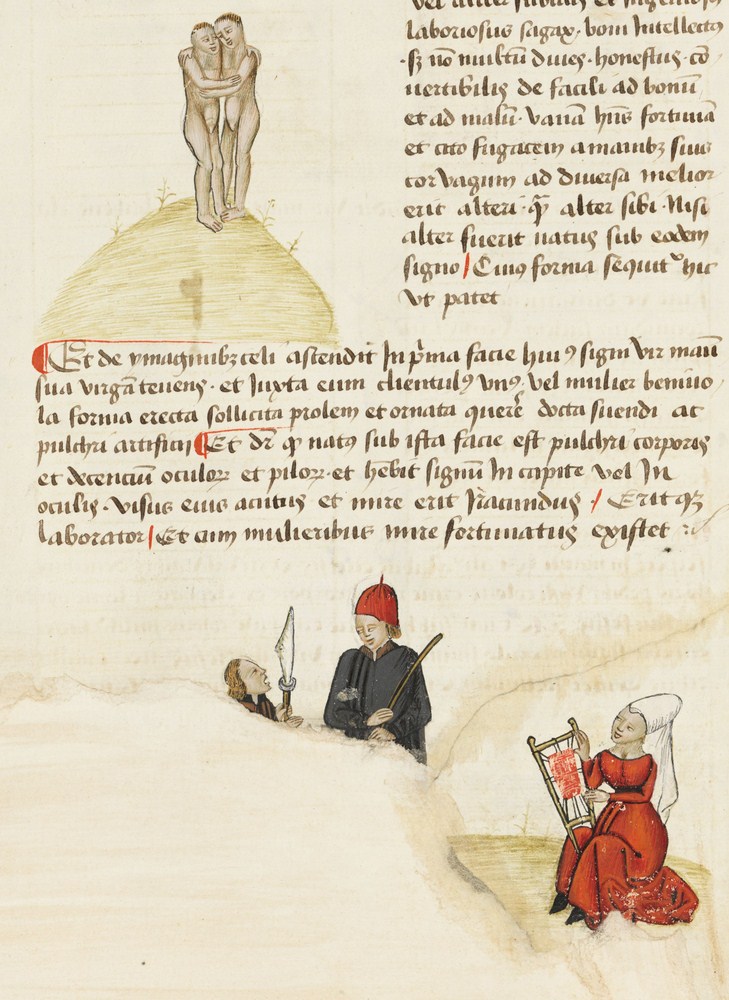 vel aliter subtilis et ingeniosus
laboriosus sagax· boni Intellectꝰ
·sꝫ nō multū diues· honestus· cō
uertibilis de facili ad bonū
et ad malū· vanā hn̄s fortunā
et cito fugacem a manibꝫ suis
cor vagum ad diuersa melior
erit alteri· qͣ̄ alter sibi· Nisi
alter fuerit natus sub eodem
signo / Cuiꝰ forma sequitᷣ hic
vt patet
Et de ymaginibꝫ celi ascendit In pͥma facie huiꝰ signi vir manu
sua virgā tenens· et Iuxta eum clientulꝰ vnꝰ· vel mulier beniuo
la forma erecta sollicita prolem et ornata querē docta suendi ac
pulchri artificij Et dr̄ qͩ natꝰ sub ista facie est pulchri corporis
et decenciū oculoꝝ et piloꝝ· et hēbit signū In capite vel In
oculis· visus eius acutus et mire erit Iracundus / Eritqꝫ
laborator / Et cum mulieribus mire fortunatus existet